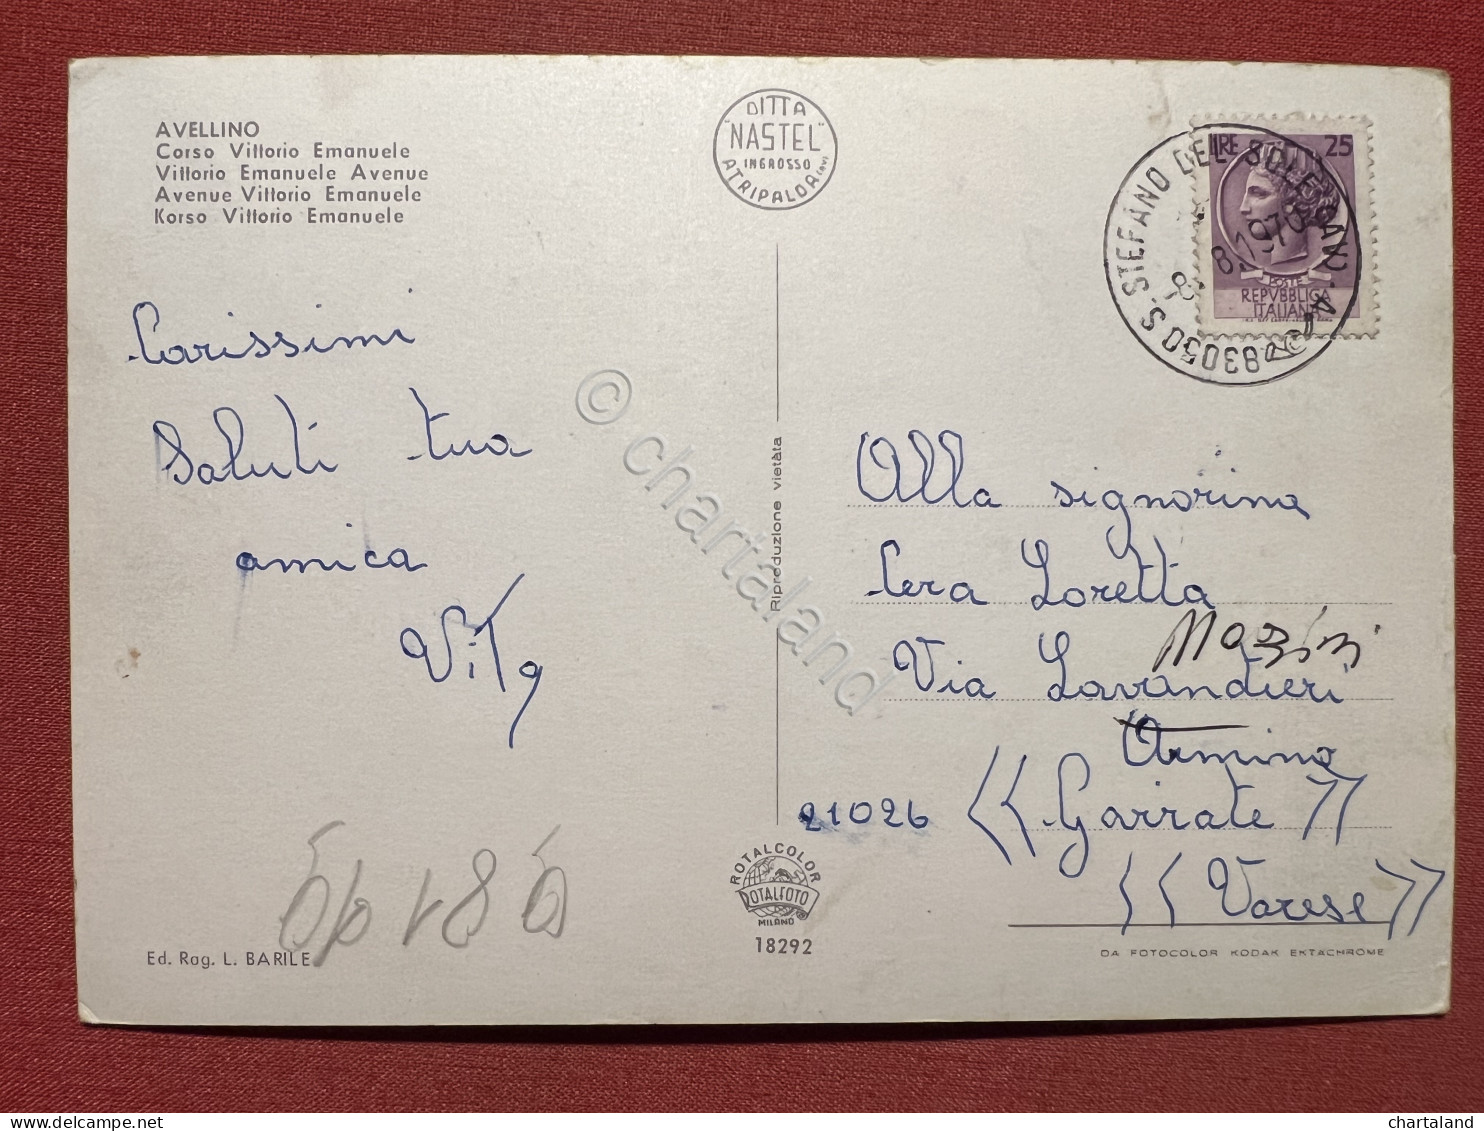 AVELLINO
Corso Vittorio Emanuele
Vittorio Emanuele Avenue
Avenue Vittorio Emanuele
Korso Vittorio Emanuele
DITTA
"NASTEL"
INGROSSO
ATRIPALDA (AV)
LIRE 25
POSTE
REPVBBLICA
ITALIANA
83030 S. STEFANO DEL SOLE (AV)
8.1970
Carissimi
Saluti tua
amica
Vita
Riproduzione vietata
Alla signorina
Cera Loretta
Mazzini
Via Lavandieri
Armino
21026 << Gavirate >>
<< Varese >>
ROTALCOLOR
ROTALFOTO
MILANO
18292
Ed. Rag. L. BARILE
DA FOTOCOLOR KODAK EKTACHROME
© chartaland
chartaland